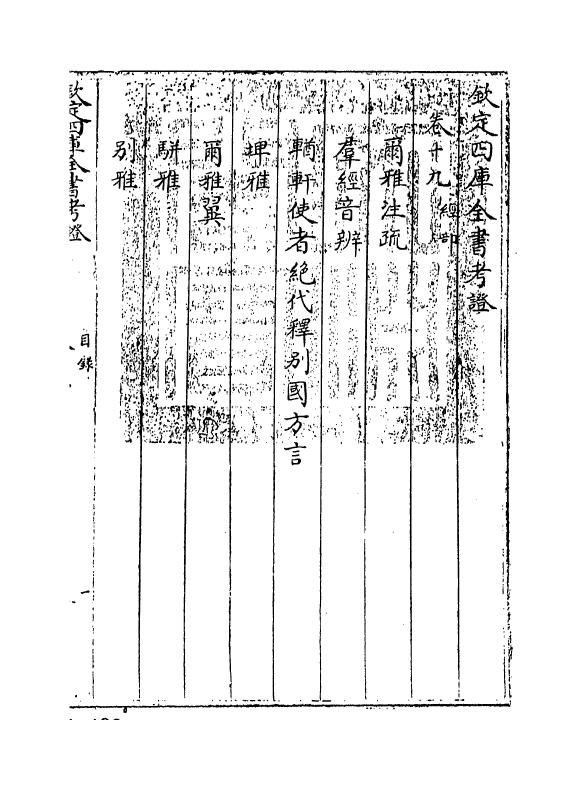 欽定四庫全書考證
卷十九 經部
爾雅注疏
羣經音辨
輶軒使者絶代釋別國方言
埤雅
爾雅翼
駢雅
別雅
欽定四庫全書考證
目錄
一